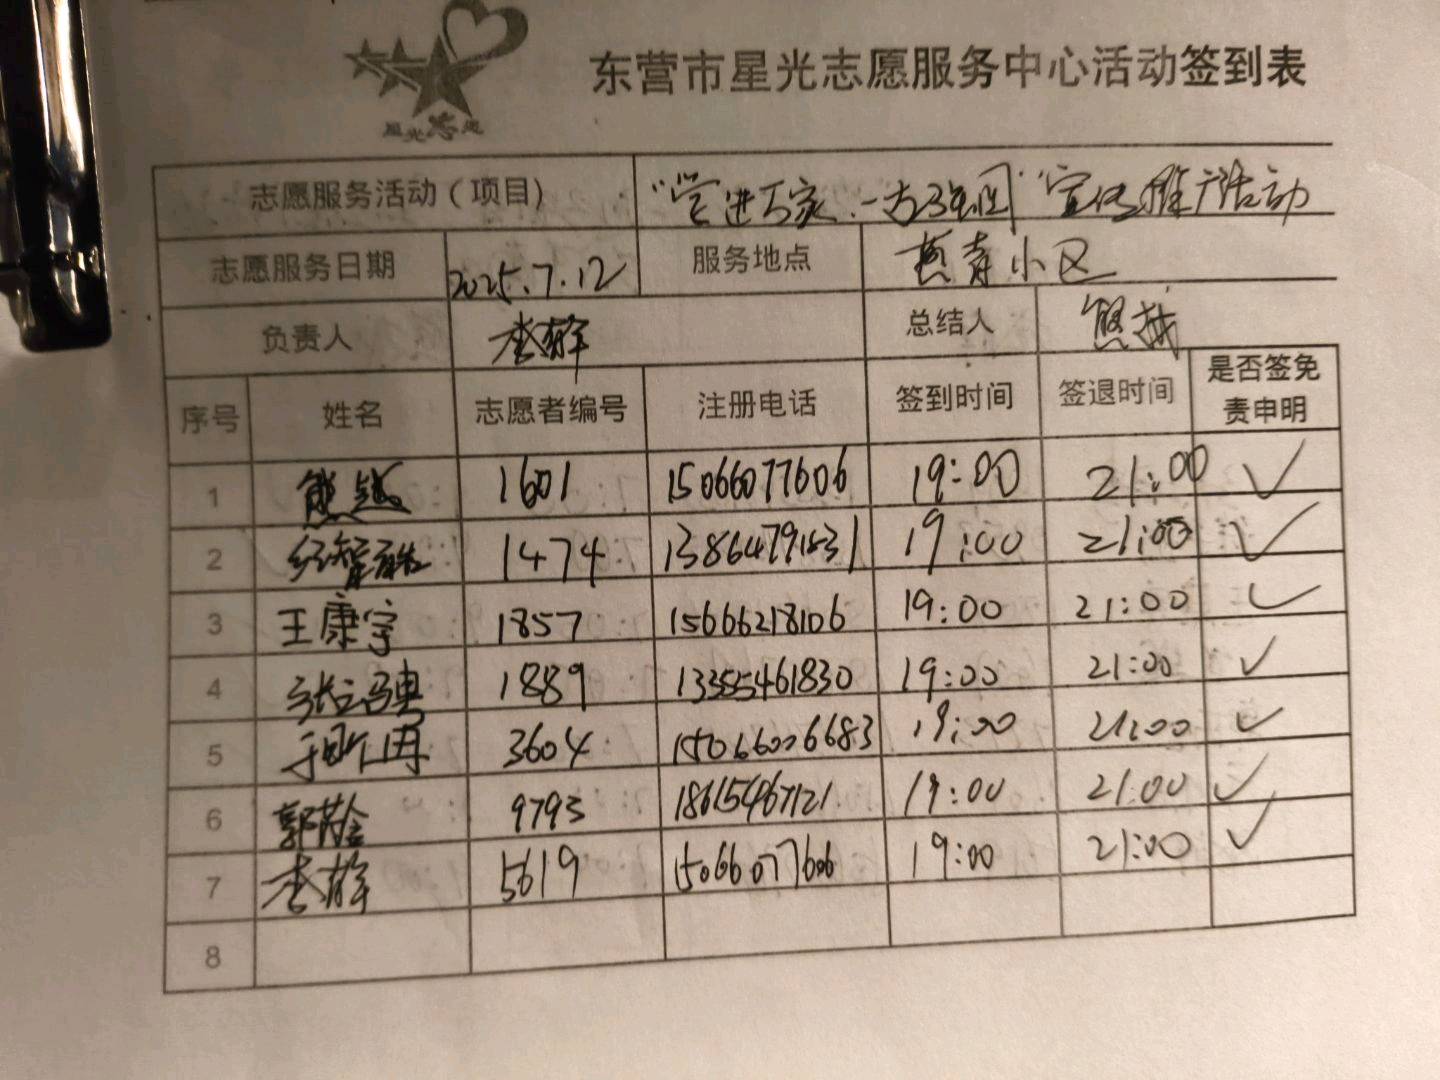 星光志愿
东营市星光志愿服务中心活动签到表
志愿服务活动（项目） “学进万家，一起强国”宣传推广活动
志愿服务日期 2025.7.12 服务地点 燕青小区
负责人 李静 总结人 熊越
序号 姓名 志愿者编号 注册电话 签到时间 签退时间 是否签免责申明
1 熊越 1601 15066077606 19:00 21:00 ✓
2 1474 19:00 21:00 ✓
3 王康宇 1857 15666218106 19:00 21:00 ✓
4 张 1889 13355461830 19:00 21:00 ✓
5 3604 15066006683 19:00 21:00 ✓
6 郭 9793 18615467121 19:00 21:00 ✓
7 李静 5619 15066077606 19:00 21:00 ✓
8